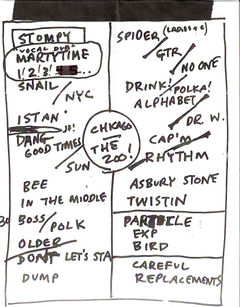 STOMPY
"VOCAL DUO"
MARTYTIME
1/2/3/
SNAIL/
NYC
ISTAN
DANG
GOOD TIMES/
SUN
BEE
IN THE MIDDLE
BOSS/
POLK
OLDER
DON'T LET'S STA
DUMP
CHICKAGO
IN
THE
ZOO!
SPIDER (LADIES + G)
GTR
NO ONE
DRINK!/
POLKA!
ALPHABET/
DR. W.
CAP'M/
RHYTHM
ASBURY STONE
TWISTIN
PARTICLE
EXP
BIRD
CAREFUL
REPLACEMENTS